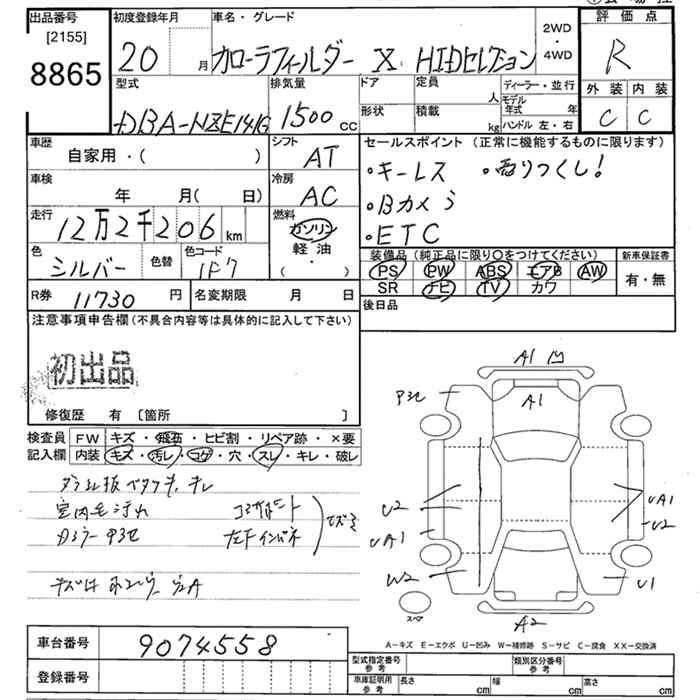 出品番号
[2155]
8865
初度登録年月
20 月
車名・グレード
カローラフィールダー X HIDセレクション
2WD・4WD
評価点
R
外装 内装
C C
型式
DBA-NZE141G
排気量
1500 cc
ドア
形状
定員 人
積載 kg
ディーラー・並行
モデル年式 年
ハンドル 左・右
車歴
自家用・( )
シフト
AT
セールスポイント (正常に機能するものに限ります)
・キーレス ・取りつくし!
・Bカメラ
・ETC
車検
年 月( 日)
冷房
AC
走行
12万2千206 km
燃料
ガソリン
軽油
( )
色
シルバー
色替
色コード
1F7
装備品 (純正品に限り○をつけてください)
PS PW ABS エアB AW
SR ナビ TV カワ
新車保証書
有・無
R券 11730 円
名変期限 月 日
後日品
注意事項申告欄 (不具合内容等は具体的に記入して下さい)
初出品
修復歴 有 [箇所 ]
検査員記入欄
FW キズ・飛石・ヒビ割・リペア跡・×要
内装 キズ・汚レ・コゲ・穴・スレ・キレ・破レ
A1 凹
A1
U2
UA1
W2
UA1
U2
U1
A2
スペア
A-キズ E-エクボ U-凹み W-補修跡 S-サビ C-腐食 XX-交換済
車台番号 9074558
登録番号
型式指定番号 参考
類別区分番号 参考
車庫証明用 参考 長さ cm 幅 cm 高さ cm